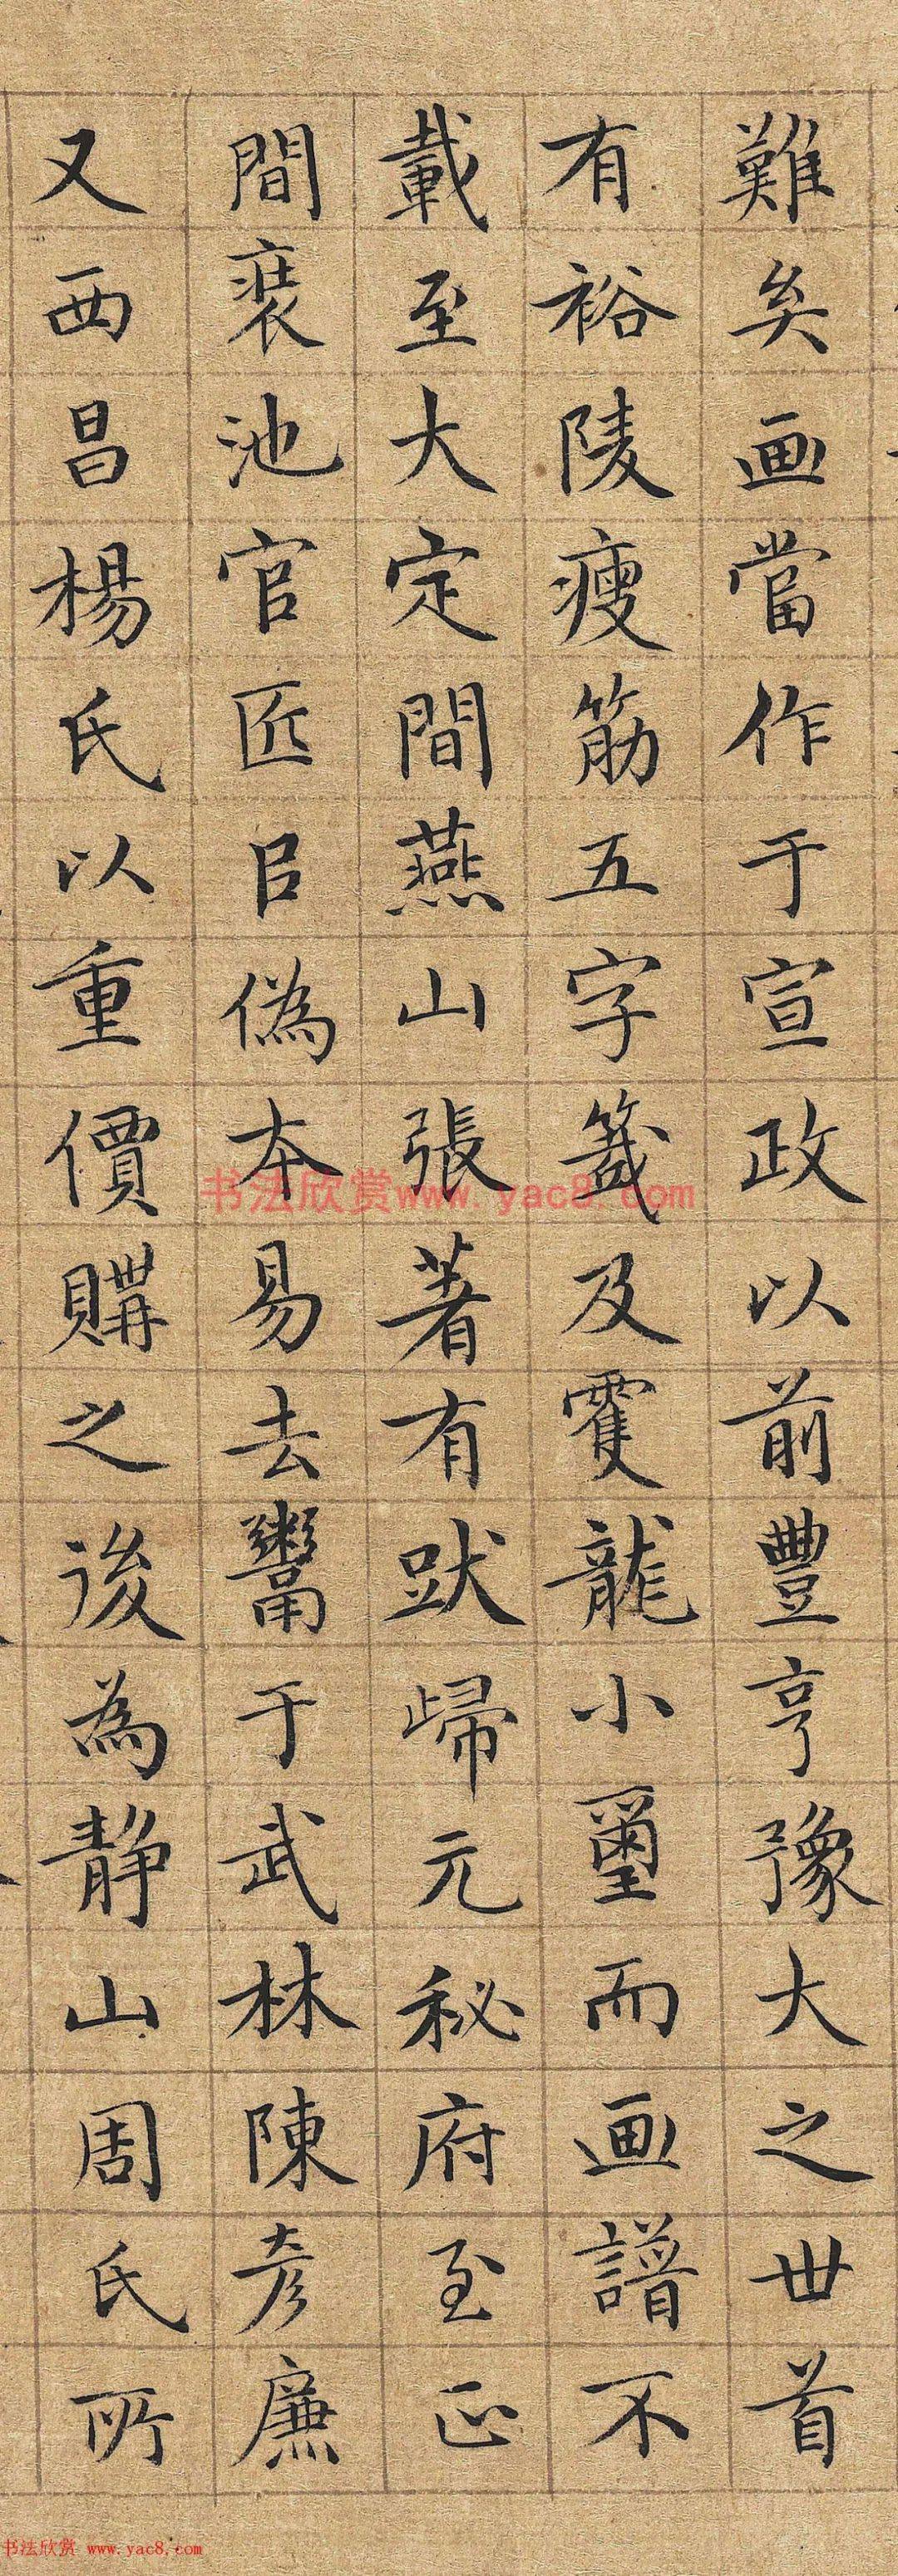 難矣画當作于宣政以前豐亨豫大之世首
有裕陵瘦筋五字籤及雙龍小璽而画譜不
載至大定間燕山張著有跋歸元秘府至正
間裝池官匠以偽本易去鬻于武林陳彦廉
又西昌楊氏以重價購之後為静山周氏所
书法欣赏www.yac8.com
书法欣赏 www.yac8.com